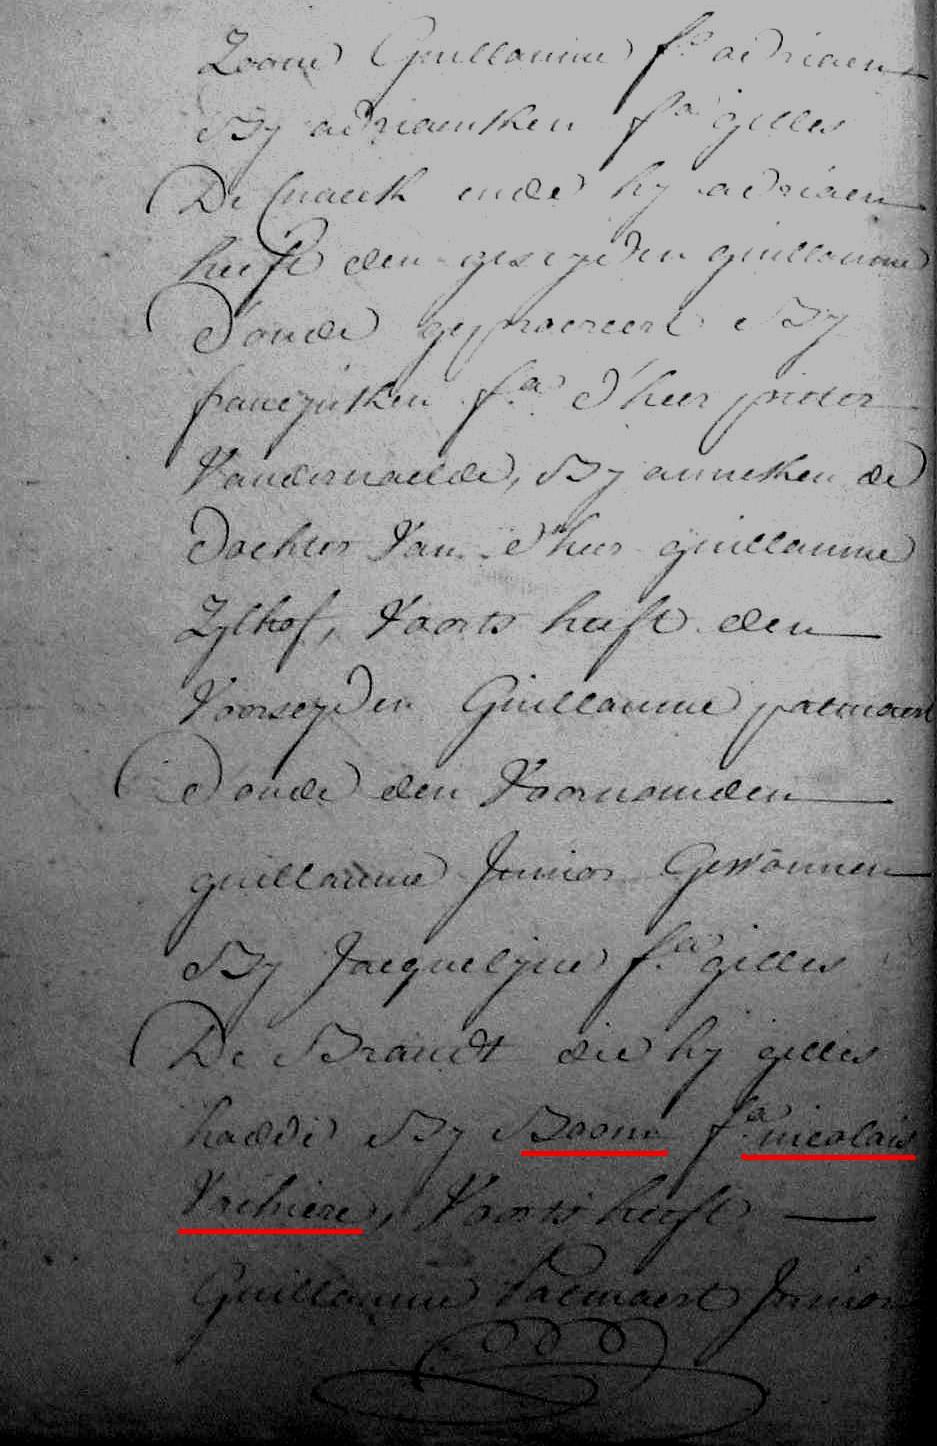 Zoone Guillaume fs adriaen
By adriaentken fa gilles
De Cnaeck ende hy adriaen
heeft den geseyden guillaume
d'oude geprocreert By
francyntken fa d'heer pieter
Vandernaelde, By anneken de
dochter Van d'heer guillaume
Zylhof, Voorts heeft den
Voorseyden Guillaume palmaert
d'oude den Voornoemden
guillaume Junior Gewonnen
By Jacquelyne fa gilles
De Brandt die hy gilles
hadde By Boone fa nicolais
Vrihiere, Voorts heeft
Guillaume Palmaert Junior